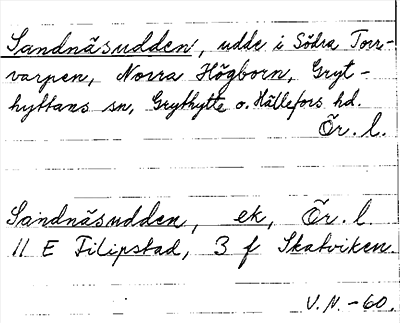 Sandnäsudden, udde i Södra Torr-
varpen, Norra Högborn, Gryt-
hyttans sn, Grythytte o. Hällefors hd.
Ör. l.
Sandnäsudden, ek, Ör. l.
11 E Filipstad, 3 f Skatviken.
V.N. -60.